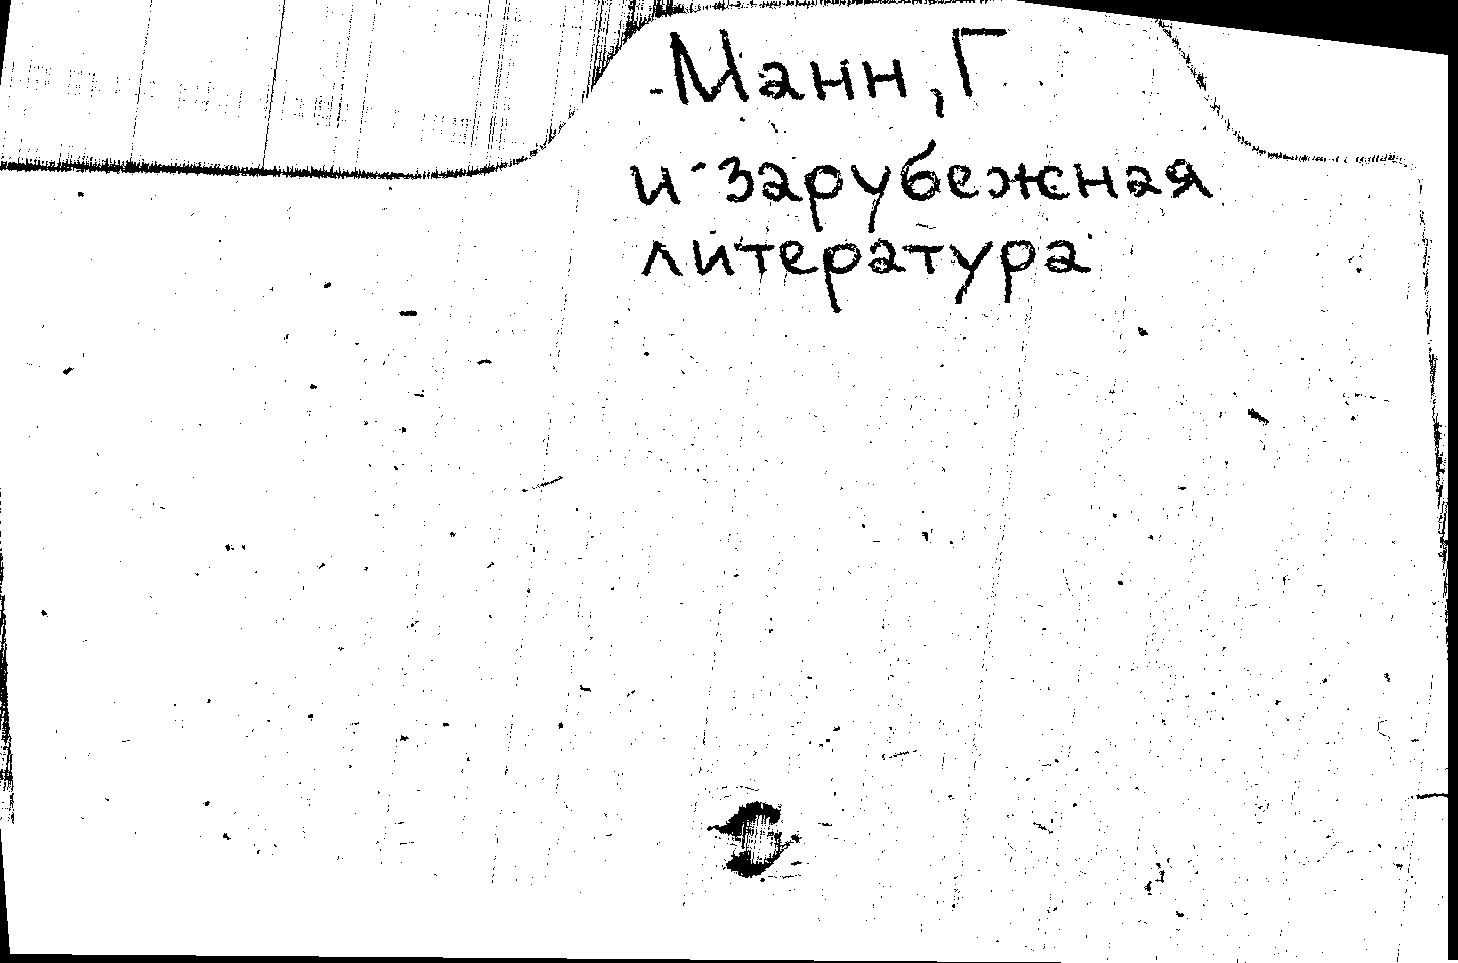 -Манн, Г
и зарубежная
литература